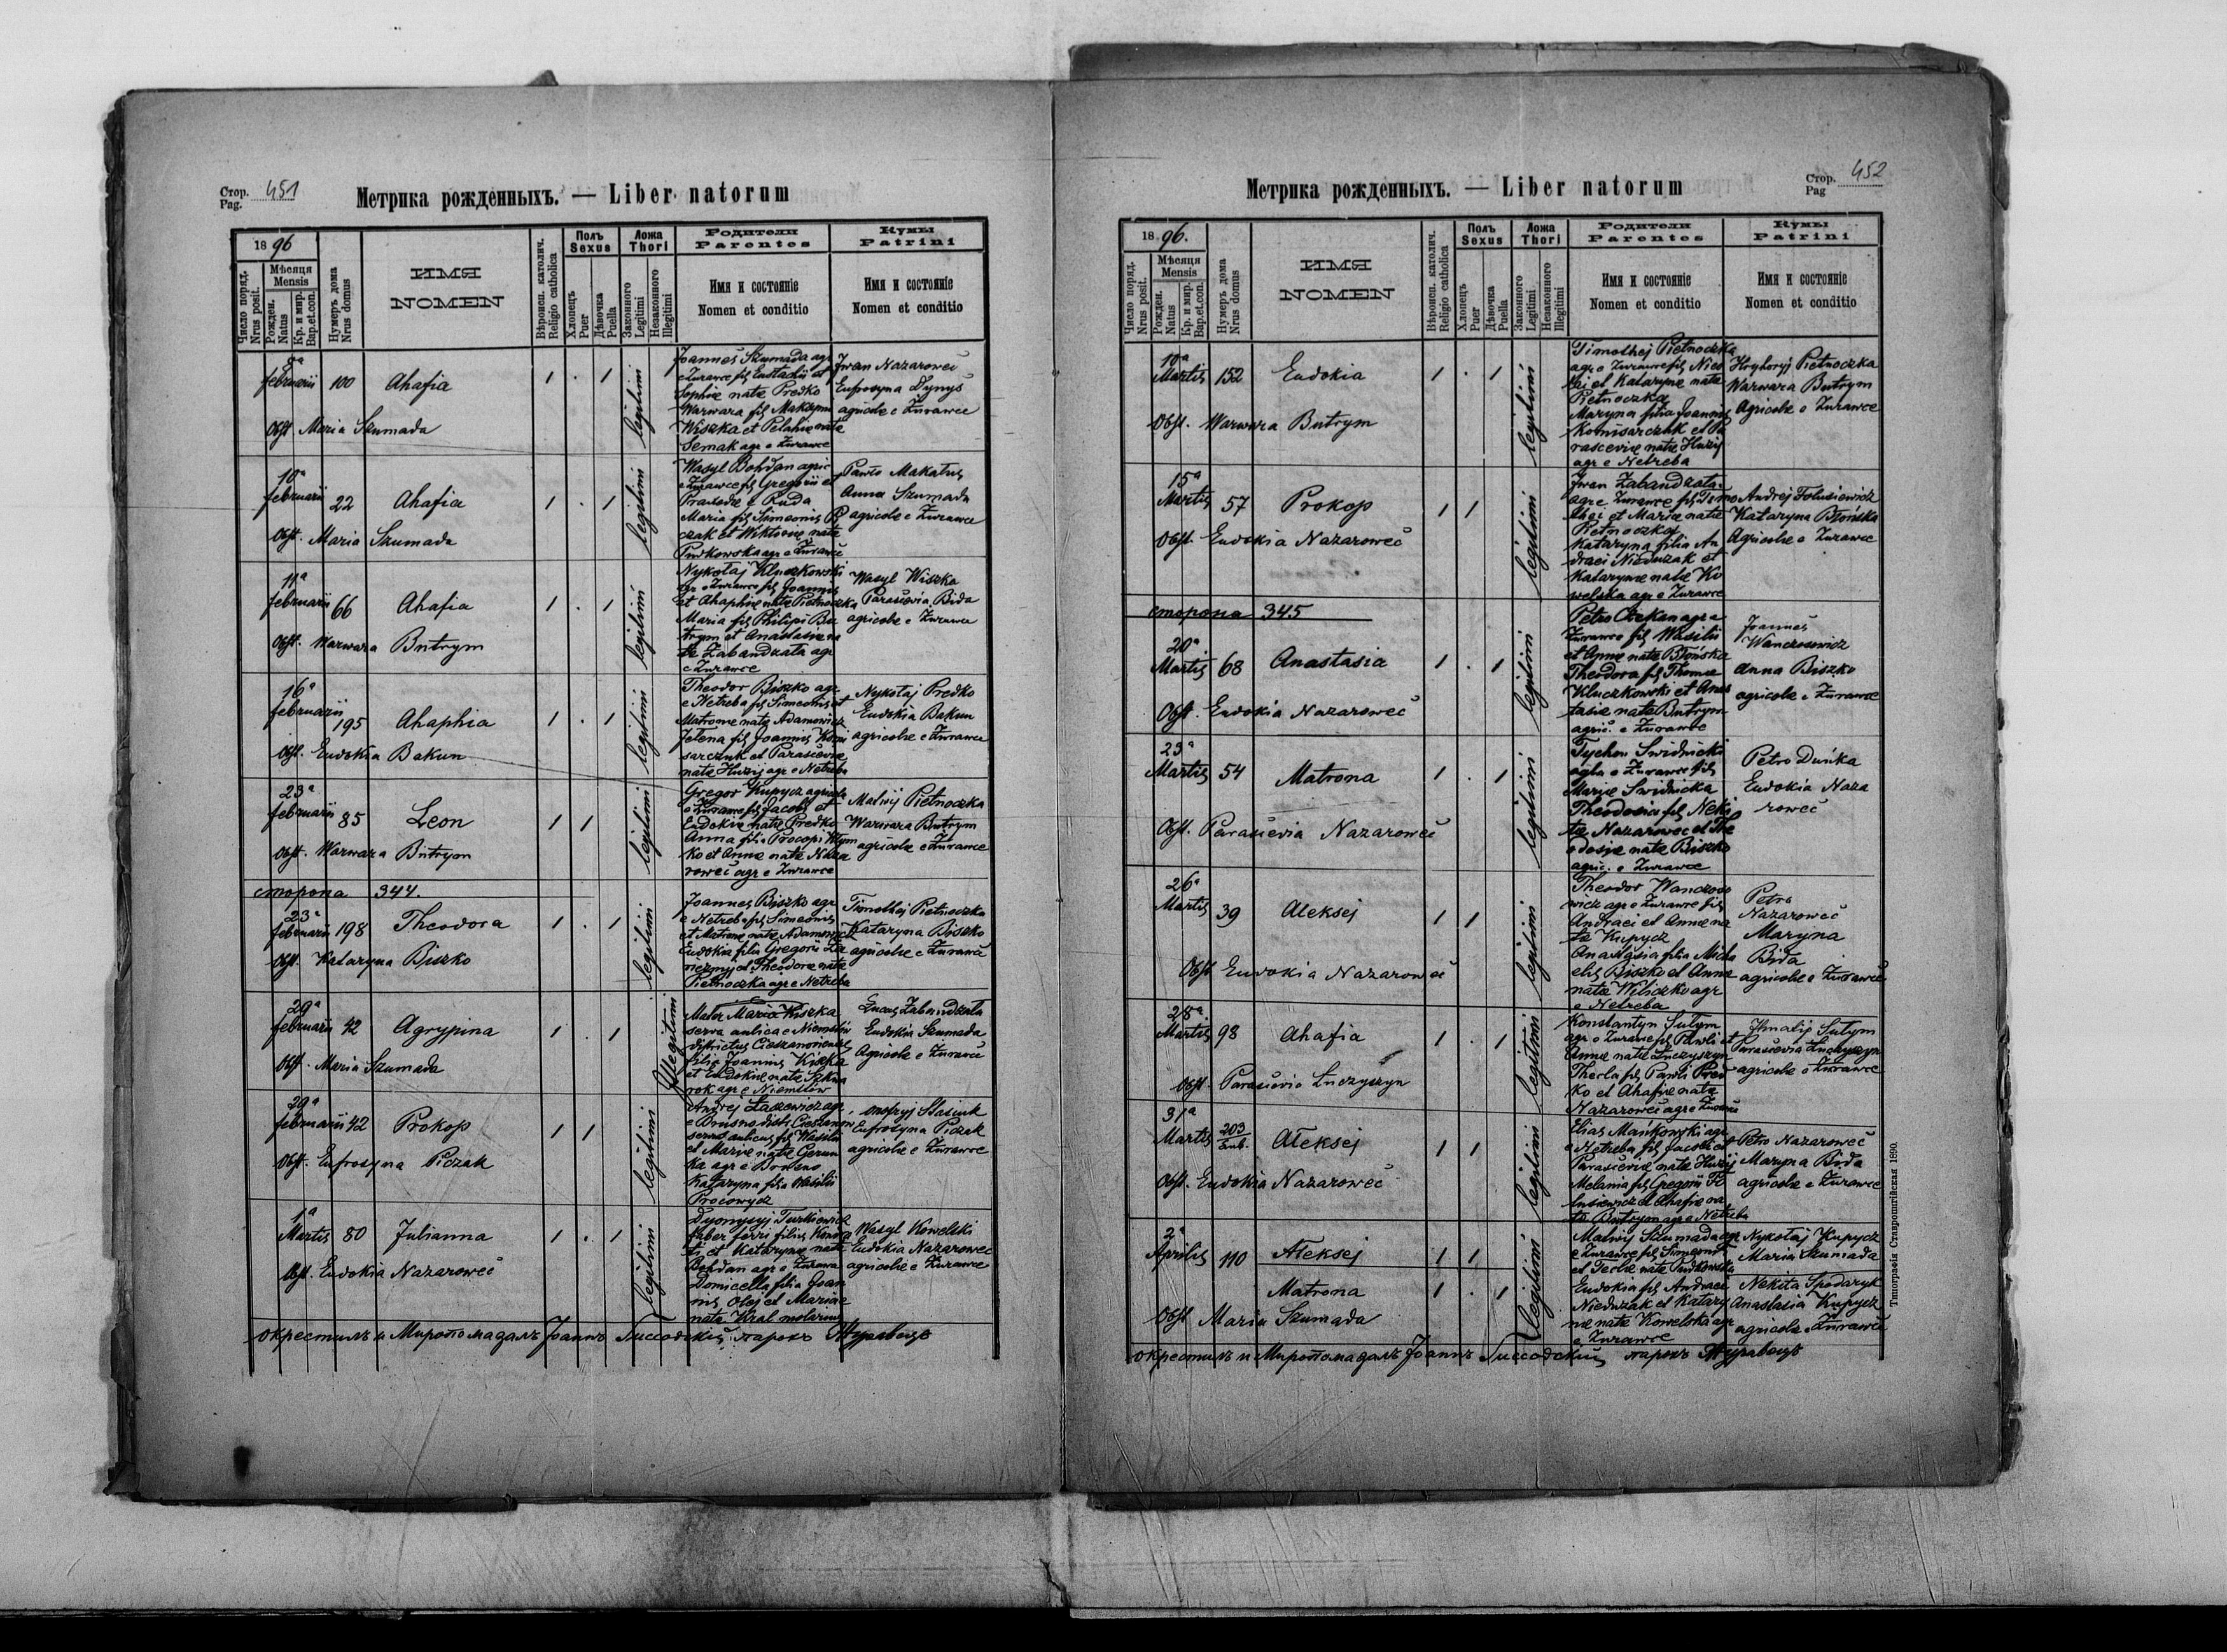 Стор.
Pag. 451
Метрика рожденныхъ. — Liber natorum
1896
Число поряд.
Nrus posit.
Мѣсяця
Mensis
Рожден.
Natus
Кр. и мир.
Bap.et.con.
Нумеръ дома
Nrus domus
ИМЯ
NOMEN
Вѣроисп. католич.
Religio catholica
Полъ
Sexus
Хлопецъ
Puer
Дѣвочка
Puella
Ложа
Thori
Законного
Legitimi
Незаконного
Illegitimi
Родители
Parentes
Имя и состоянiе
Nomen et conditio
Кумы
Patrini
Имя и состоянiе
Nomen et conditio
8ª
februarii 100 Ahafia 1 . 1 legitimi
Obst. Maria Szumada
Joannes Szumada agr
e Żurawce fil Eustachii et
Sophiæ natæ Predko
Warwara fil Maksymi
Wiszka et Pelahiæ natæ
Semak agr e Żurawce
Jwan Nazaroweć
Eufrosyna Dynyś
agricolæ e Żurawce
10ª
februarii 22 Ahafia 1 . 1 legitimi
Obst. Maria Szumada
Wasyl Bohdan agric
e Żurawce fil Gregorii et
Praxedæ e Ruda
Maria fil Simeonis
czak et Wiktoriæ natæ
Pudkowska agr e Żurawce
Pawło Makatus
Anna Szumada
agricolæ e Żurawce
11ª
februarii 66 Ahafia 1 . 1 legitimi
Obst. Warwara Butrym
Nykołaj Kluczkowski
agr e Żurawce fil Joannis
et Ahaphiæ natæ Pietnoczka
Maria fil Philipi Bu
trym et Anastasiæ na
tæ Zabandżała agr
e Żurawce
Wasyl Wiszka
Parasievia Bida
agricolæ e Żurawce
16ª
februarii 195 Ahaphia 1 . 1 legitimi
Obst. Eudokia Bakun
Theodor Biszko agr
e Netreba fil Simeonis et
Matronæ natæ Adamowicz
Jelena fil Joannis Komi
sarczuk et Parasceviæ
natæ Huzij agr e Netreba
Nykołaj Predko
Eudokia Bakun
agricolæ e Żurawce
23ª
februarii 85 Leon 1 1 legitimi
Obst. Warwara Butrym
Gregor Kupycz agricola
e Żurawce fil Jacobi et
Eudokiæ natæ Predko
Anna filia Procopi Klym
ko et Annæ natæ Naza
roweć agr e Żurawce
Matwij Pietnoczka
Warwara Butrym
agricolæ e Żurawce
сторона 344.
23ª
februarii 198 Theodora 1 . 1 legitimi
Obst. Kataryna Biszko
Joannes Biszko agr
e Netreba fil Simeonis
et Matronæ natæ Adamowicz
Eudokia filia Gregorii
et Theodoræ natæ
Pietnoczka agr e Netreba
Timothej Pietnoczka
Kataryna Biszko
agricolæ e Żurawce
29ª
februarii 42 Agrypina 1 . 1 Illegitimi
Obst. Maria Szumada
Mater Maria Kiszka
serva aulica e Niemstów
districtus Cieszanoviensis
filia Joannis Kiszka
et Eudokiæ natæ
agr e Niemstów
Lucas Zabandżała
Eudokia Szumada
Agricolæ e Żurawce
29ª
februarii 42 Prokop 1 1 legitimi
Obst. Eufrosyna Piczak
Andrej Łaszewicz agr
e Brusno distr. Cieszanow
servus aulicus fil Wasilii
et Mariæ natæ Gerun
ka agr e Brusno
Kataryna filia Wasilii
Procowycz
Onofryj Stasiuk
Eufrosyna Piczak
agricolæ e Żurawce
1ª
Martis 80 Julianna 1 . 1 legitimi
Obst. Eudokia Nazaroweć
Dyonysyj Turkiewicz
faber ferri filius Kondra
ti et Katarynæ natæ
Bohdan agr e Żurawce
Domicella filia Joan
nis Olej et Mariæ
nata Kral molarius
Wasyl Kowelski
Eudokia Nazaroweć
agricolæ e Żurawce
окрестилъ и Миропомазалъ Іоаннъ парохъ Журавецъ
Стор.
Pag 452
Метрика рожденныхъ. — Liber natorum
1896.
Число поряд.
Nrus posit.
Мѣсяця
Mensis
Рожден.
Natus
Кр. и мир.
Bap.et.con.
Нумеръ дома
Nrus domus
ИМЯ
NOMEN
Вѣроисп. католич.
Religio catholica
Полъ
Sexus
Хлопецъ
Puer
Дѣвочка
Puella
Ложа
Thori
Законного
Legitimi
Незаконного
Illegitimi
Родители
Parentes
Имя и состоянiе
Nomen et conditio
Кумы
Patrini
Имя и состоянiе
Nomen et conditio
10ª
Martis 152 Eudokia 1 . 1 legitimi
Obst. Warwara Butrym
Timothej Pietnoczka
agr e Żurawce fil Nico
lai et Katarynæ natæ
Pietnoczka
Maryna filia Joannis
Komisarczuk et Pa
rasceviæ natæ Huzij
agr e Netreba
Hryhoryj Pietnoczka
Warwara Butrym
Agricolæ e Żurawce
15ª
Martis 57 Prokop 1 1 legitimi
Obst. Eudokia Nazaroweć
Jwan Zabandżała
agr e Żurawce fil Timo
thei et Mariæ natæ
Pietnoczka
Kataryna filia An
draei Niedużak et
Katarynæ natæ Ko
welska agr e Żurawce
Andrej Tołusiewicz
Kataryna Błońska
Agricolæ e Żurawce
сторона 345
20ª
Martis 68 Anastasia 1 . 1 legitimi
Obst. Eudokia Nazaroweć
Petro Czekan agr e
Żurawce fil Wasilii
et Annæ natæ Błońska
Theodora fil Thomæ
Kluczkowski et Anas
tasiæ natæ Butrym
agric. e Żurawce
Joannes
Wanczosowicz
Anna Biszko
agricolæ e Żurawce
23ª
Martis 54 Matrona 1 . 1 legitimi
Obst. Parasievia Nazaroweć
Tychon Swidnicki
agla e Żurawce fil
Mariæ Swidnicka
Theodosia fil Neki
tæ Nazaroweć et The
odosiæ natæ Biszko
agric. e Żurawce
Petro Duńka
Eudokia Naza
roweć
26ª
Martis 39 Aleksej 1 1 legitimi
Obst Eudokia Nazaroweć
Theodor Wanczoso
wicz agr e Żurawce fil
Andraei et Annæ na
tæ Kupycz
Anastasia filia Micha
elis Biszko et Annæ
natæ Wiliczko agr
e Netreba
Petro
Nazaroweć
Maryna
Bida
agricolæ e Żurawce
28ª
Martis 98 Ahafia 1 . 1 legitimi
Obst. Parasievia Łuczyszyn
Konstantyn Sutym
agr e Żurawce fil Pawli et
Annæ natæ Łuczyszyn
Thecla fil Pawli Pred
ko et Ahafiæ natæ
Nazaroweć agr e Żurawce
Hnatij Sutym
Parasievia Łuczyszyn
agricolæ e Żurawce
31ª
Martis 203/Lub. Aleksej 1 1 legitimi
Obst. Eudokia Nazaroweć
Elias Mańkowski agr
e Netreba fil Jacobi et
Parasceviæ natæ Huzij
Melania fil Gregorii To
łusiewicz et Ahafiæ na
tæ Butrym agr e Netreba
Petro Nazaroweć
Maryna Bida
agricolæ e Żurawce
2ª
Aprilis 110 Aleksej 1 1
Matrona 1 . 1 legitimi
Obst Maria Szumada
Matwij Szumada agr
e Żurawce fil Simeonis
et Teclæ natæ Pudkowska
Eudokia fil Andraei
Nieduzak et Katary
næ natæ Kowelska agr
e Żurawce
Nykołaj Kupycz
Maria Szumada
Nekita Spodaryk
Anastasia Kupycz
agricolæ e Żurawce
окрестилъ и Миропомазалъ Іоаннъ парохъ Журавецъ
Типографія Ставропигійская 1890.